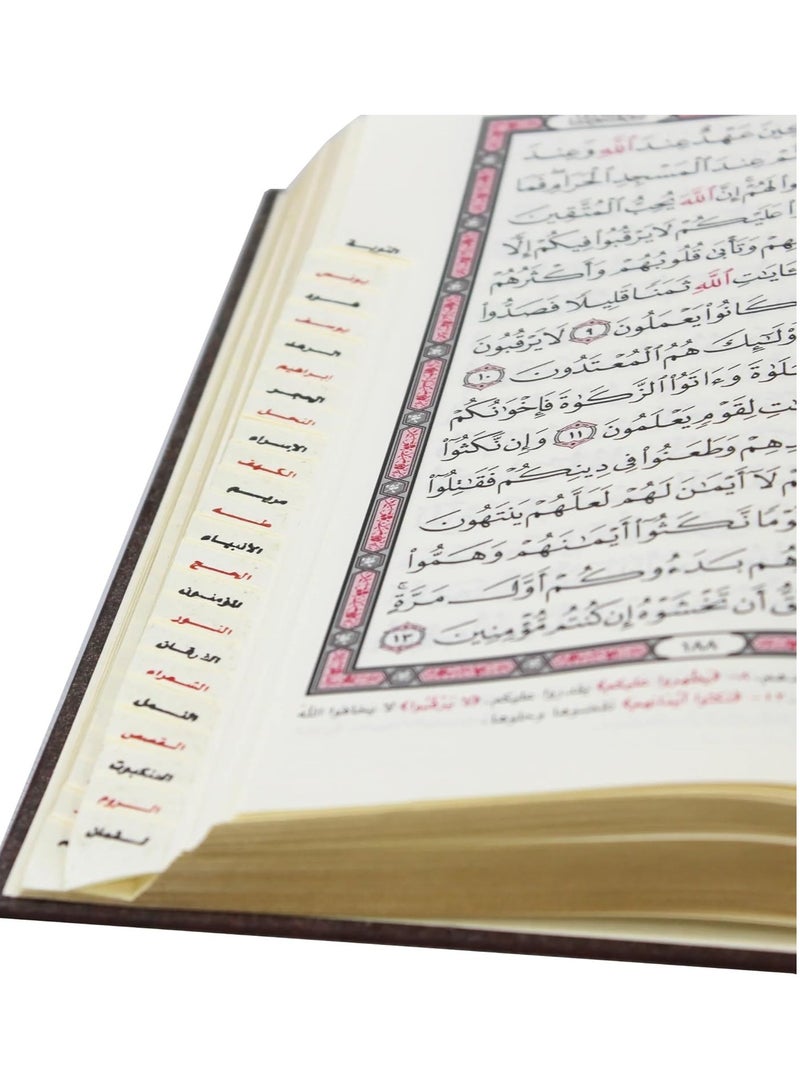 عَهْدٌ عِندَ ٱللَّهِ وَعِندَ
عِندَ ٱلْمَسْجِدِ ٱلْحَرَامِ فَمَا
لَهُمْ إِنَّ ٱللَّهَ يُحِبُّ ٱلْمُتَّقِينَ
عَلَيْكُمْ لَا يَرْقُبُوا۟ فِيكُمْ إِلًّا
وَتَأْبَىٰ قُلُوبُهُمْ وَأَكْثَرُهُمْ
بِـَٔايَـٰتِ ٱللَّهِ ثَمَنًا قَلِيلًا فَصَدُّوا۟
كَانُوا۟ يَعْمَلُونَ ٩ لَا يَرْقُبُونَ
هُمُ ٱلْمُعْتَدُونَ ١٠
وَءَاتَوُا۟ ٱلزَّكَوٰةَ فَإِخْوَٰنُكُمْ
لِقَوْمٍ يَعْلَمُونَ ١١ وَإِن نَّكَثُوٓا۟
وَطَعَنُوا۟ فِى دِينِكُمْ فَقَـٰتِلُوٓا۟
لَآ أَيْمَـٰنَ لَهُمْ لَعَلَّهُمْ يَنتَهُونَ
قَوْمًا نَّكَثُوٓا۟ أَيْمَـٰنَهُمْ وَهَمُّوا۟
بَدَءُوكُمْ أَوَّلَ مَرَّةٍ
أَن تَخْشَوْهُ إِن كُنتُم مُّؤْمِنِينَ ١٣
١٨٨
٨- ﴿يظهروا عليكم﴾ يقدروا عليكم، ﴿لا يرقبوا﴾ لا يخافوا الله
التوبة
يونس
هود
يوسف
الرعد
ابراهيم
الحجر
النحل
الإسراء
الكهف
مريم
طه
الأنبياء
الحج
المؤمنون
النور
الفرقان
الشعراء
النمل
القصص
العنكبوت
الروم
لقمان